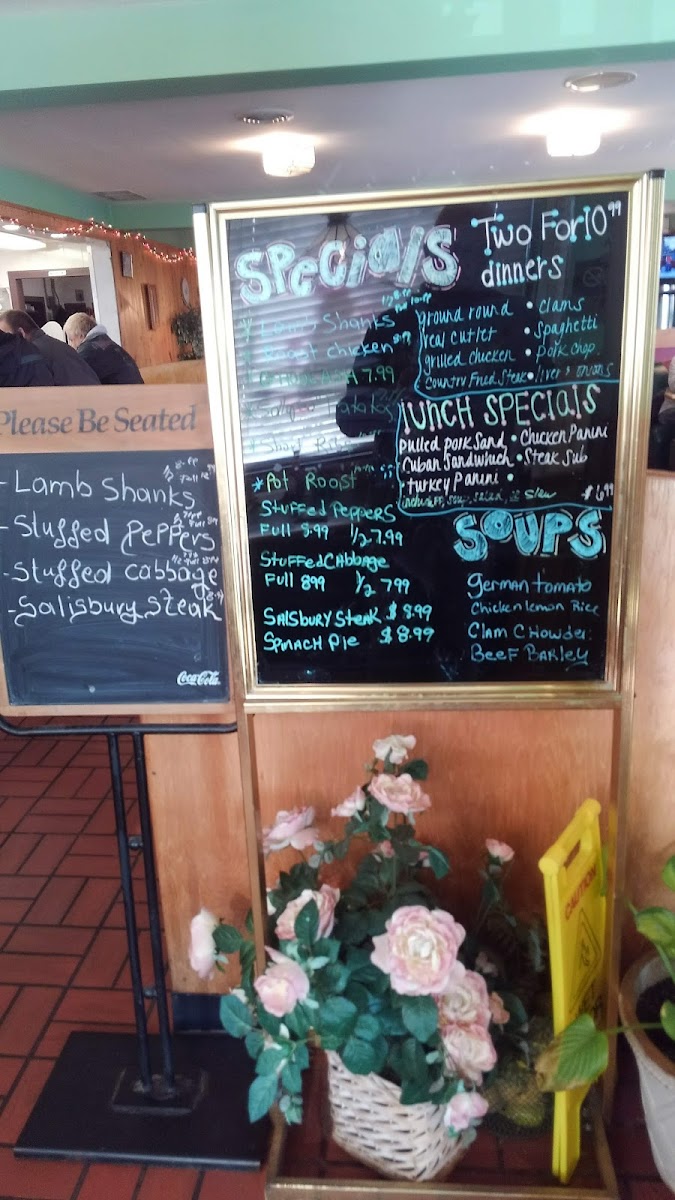 Please Be Seated
- Lamb Shanks
- Stuffed Peppers
- Stuffed cabbage
- Salisbury steak
Coca-Cola
Specials
Lamb Shanks
Roast chicken
7.99
*Pot Roast
Stuffed Peppers
Full 8.99 1/2 - 7.99
Stuffed Cabbage
Full 899 1/2 799
Salsbury Steak $8.99
Spinach Pie $8.99
Two For 10 99
dinners
ground round • clams
veal cutlet • Spaghetti
grilled chicken • Pork chop
Country Fried Steak • liver & onions
lunch Specials
Pulled Pork Sand • Chicken Panini
Cuban Sandwhich • Steak Sub
• turkey Panini •
soup, salad, Slaw $6.99
Soups
german tomato
Chicken Lemon Rice
Clam Chowder
Beef Barley
CAUTION